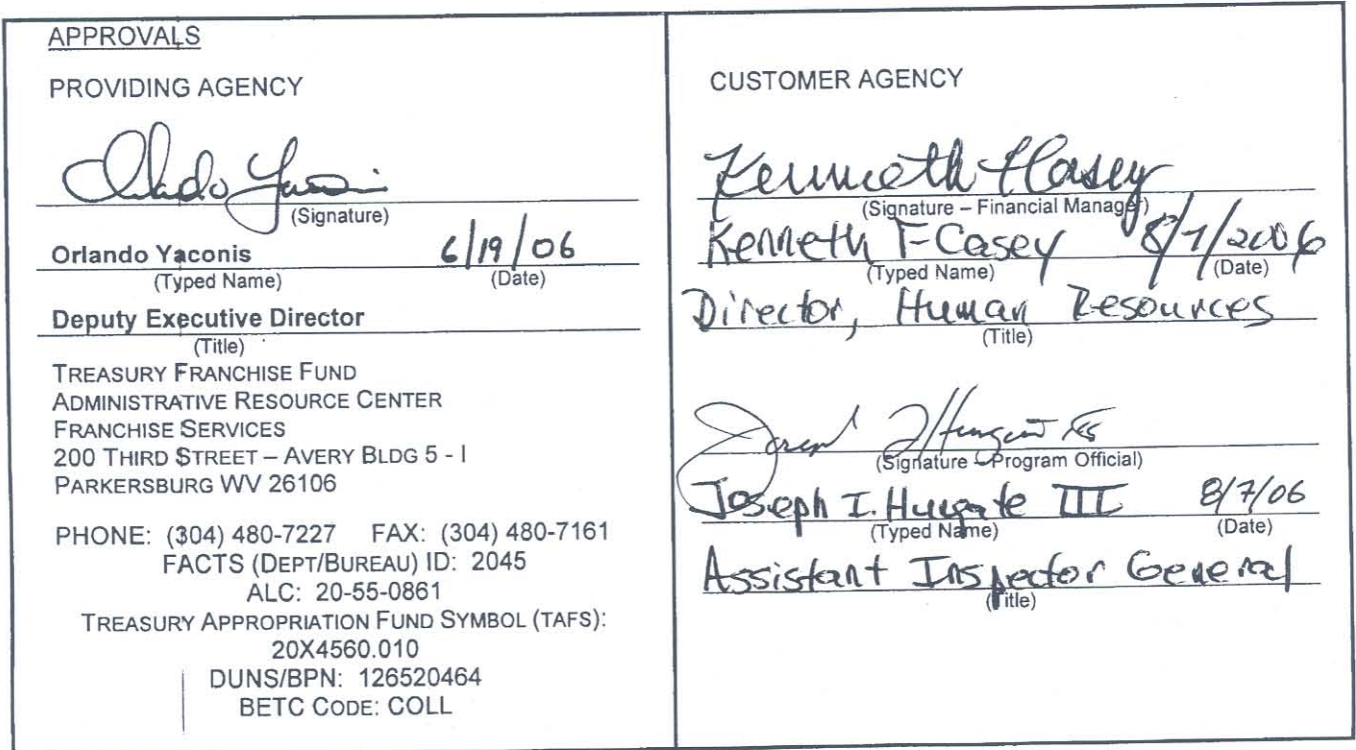 APPROVALS
PROVIDING AGENCY
(Signature)
Orlando Yaconis 6/19/06
(Typed Name) (Date)
Deputy Executive Director
(Title)
TREASURY FRANCHISE FUND
ADMINISTRATIVE RESOURCE CENTER
FRANCHISE SERVICES
200 THIRD STREET – AVERY BLDG 5 - I
PARKERSBURG WV 26106
PHONE: (304) 480-7227 FAX: (304) 480-7161
FACTS (DEPT/BUREAU) ID: 2045
ALC: 20-55-0861
TREASURY APPROPRIATION FUND SYMBOL (TAFS):
20X4560.010
DUNS/BPN: 126520464
BETC CODE: COLL
CUSTOMER AGENCY
Kenneth F Casey
(Signature – Financial Manager)
Kenneth F Casey 8/7/2006
(Typed Name) (Date)
Director, Human Resources
(Title)
(Signature – Program Official)
Joseph I. Hungate III 8/7/06
(Typed Name) (Date)
Assistant Inspector General
(Title)